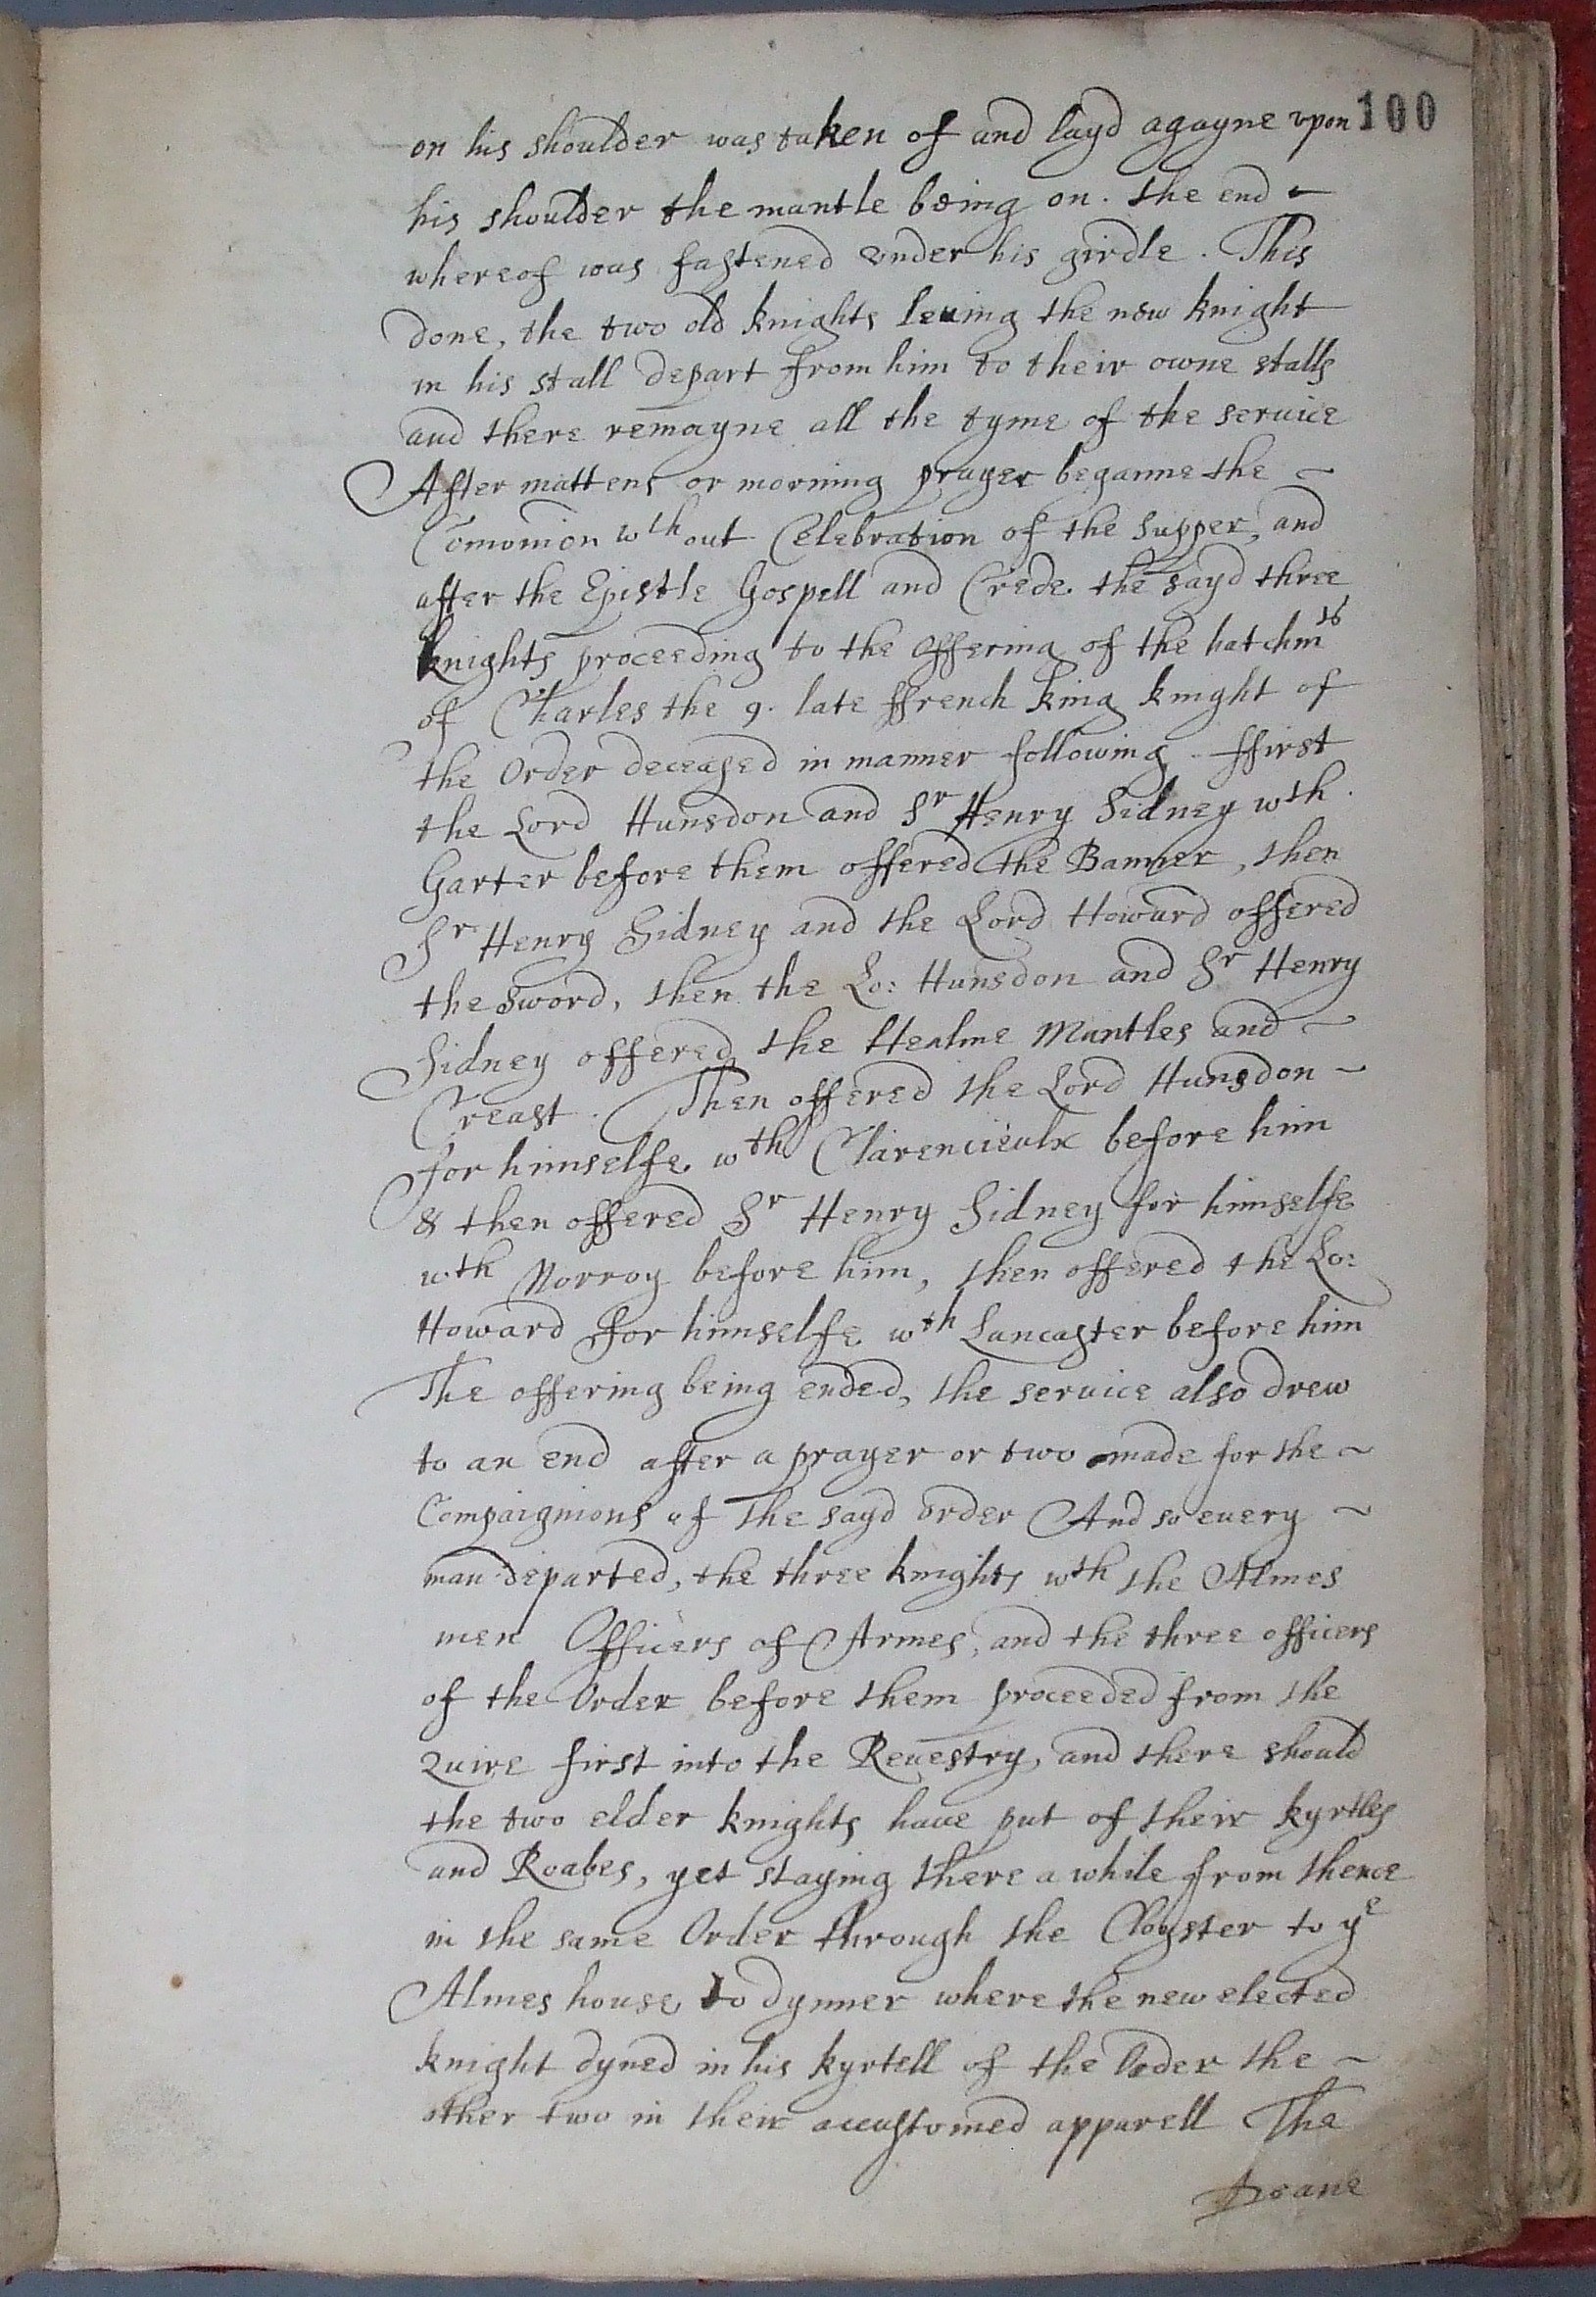 100
on his shoulder was taken of and layd agayne vpon
his shoulder the mantle being on. the end
whereof was fastened vnder his girdle. This
done, the two old knights leuing the new knight
in his stall depart from him to their owne stalls
and there remayne all the tyme of the seruice
After mattens or morning prayer beganne the
Comonion wth out Celebration of the Supper, and
after the Epistle Gospell and Crede. the sayd three
knights proceeding to the offering of the hatchmts
of Charles the 9. late ffrench king knight of
the Order deceased in manner following. ffirst
the Lord Hunsdon and Sr Henry Sidney wth
Garter before them offered the Banner, then
Sr Henry Sidney and the Lord Howard offered
the Sword, then the Lo: Hunsdon and Sr Henry
Sidney offered the Healme Mantles and
Creast. Then offered the Lord Hunsdon
for himselfe wth Clarencieulx before him
& then offered Sr Henry Sidney for himselfe
wth Norroy before him, then offered the Lo:
Howard for himselfe wth Lancaster before him
The offering being ended, the seruice also drew
to an end after a prayer or two made for the
Compaignions of the sayd order And so euery
man departed, the three knights wth the Almes
men Officers of Armes, and the three officers
of the Order before them proceeded from the
Quire first into the Reuestry, and there should
the two elder knights haue put of their kyrtles
and Roabes, yet staying there a while from thence
in the same Order through the Cloyster to ye
Almes house to dynner where the new elected
knight dyned in his kyrtell of the Order the
other two in their accustomed apparell The
Deane